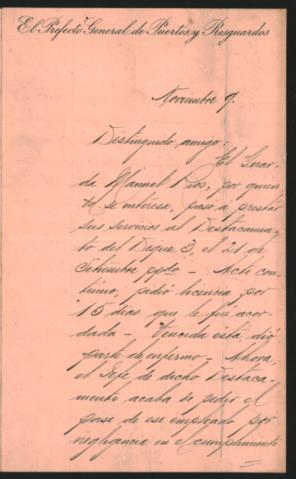 El Prefecto General de Puertos y Resguardos
Noviembre 9.
Distinguido amigo:
El Guar-
da Manuel Rios, por quien
Vd. se interesa, pasó a prestar
sus servicios al Destacamen-
to del Dique 3, el 21 de
Setiembre ppdo - Acto con-
tinuo, pidió licencia por
15 dias que le fué acor-
dada - Vencida ésta, dió
parte de enfermo - Ahora,
el Jefe de dicho Destaca-
mento acaba de pedir el
pase de ese empleado por
negligencia en el cumplimiento